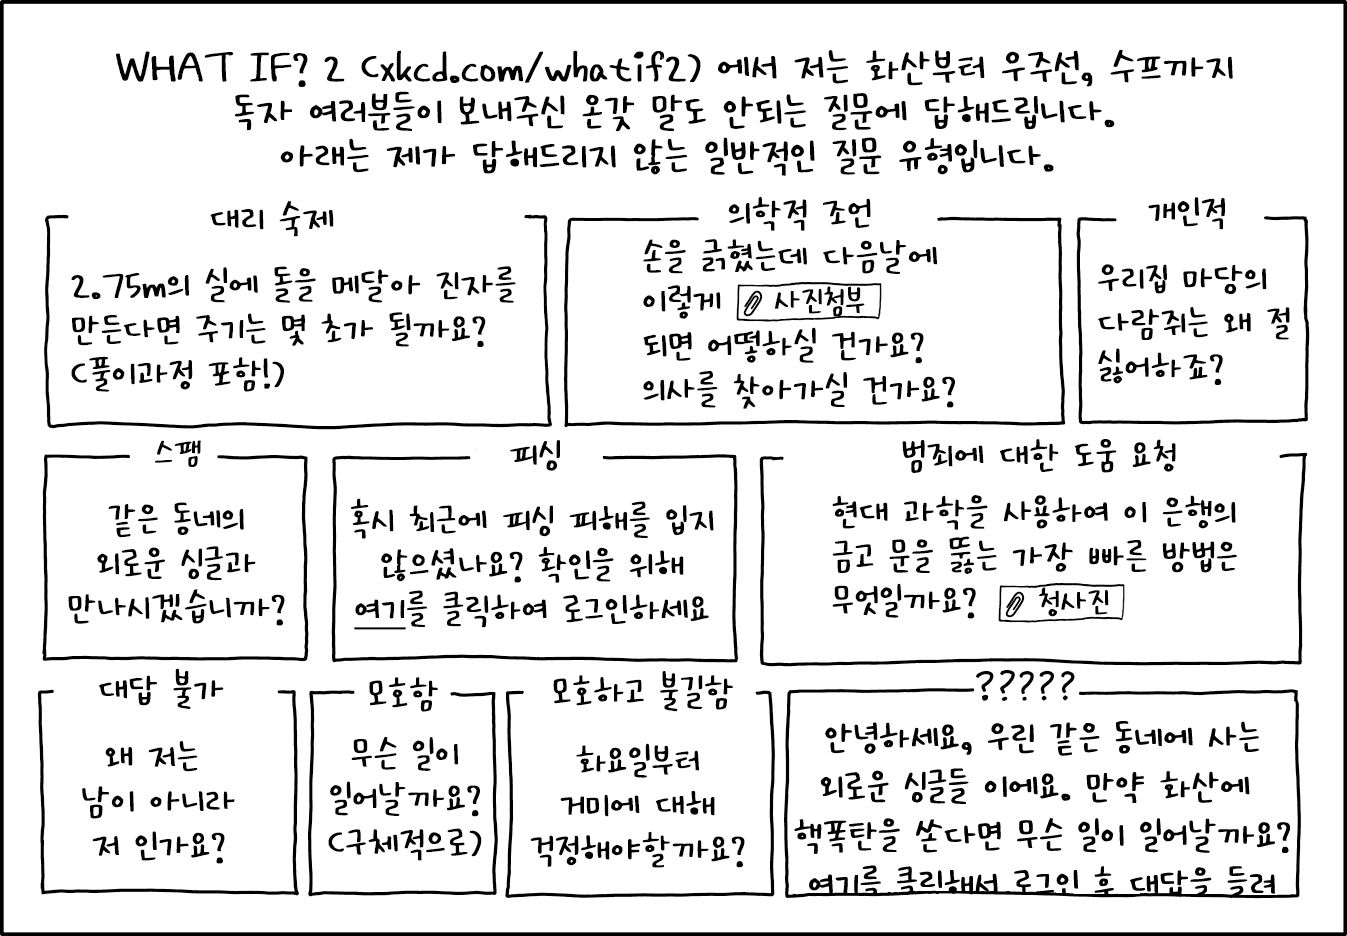 WHAT IF? 2 (xkcd.com/whatif2) 에서 저는 화산부터 우주선, 수프까지
독자 여러분들이 보내주신 온갖 말도 안되는 질문에 답해드립니다.
아래는 제가 답해드리지 않는 일반적인 질문 유형입니다.
대리 숙제
2.75m의 실에 돌을 메달아 진자를
만든다면 주기는 몇 초가 될까요?
(풀이과정 포함!)
의학적 조언
손을 긁혔는데 다음날에
이렇게 사진첨부
되면 어떻하실 건가요?
의사를 찾아가실 건가요?
개인적
우리집 마당의
다람쥐는 왜 절
싫어하죠?
스팸
같은 동네의
외로운 싱글과
만나시겠습니까?
피싱
혹시 최근에 피싱 피해를 입지
않으셨나요? 확인을 위해
여기를 클릭하여 로그인하세요
범죄에 대한 도움 요청
현대 과학을 사용하여 이 은행의
금고 문을 뚫는 가장 빠른 방법은
무엇일까요? 청사진
대답 불가
왜 저는
남이 아니라
저 인가요?
모호함
무슨 일이
일어날까요?
(구체적으로)
모호하고 불길함
화요일부터
거미에 대해
걱정해야할까요?
?????
안녕하세요, 우린 같은 동네에 사는
외로운 싱글들 이에요. 만약 화산에
핵폭탄을 쏜다면 무슨 일이 일어날까요?
여기를 클릭해서 로그인 후 대답을 들려